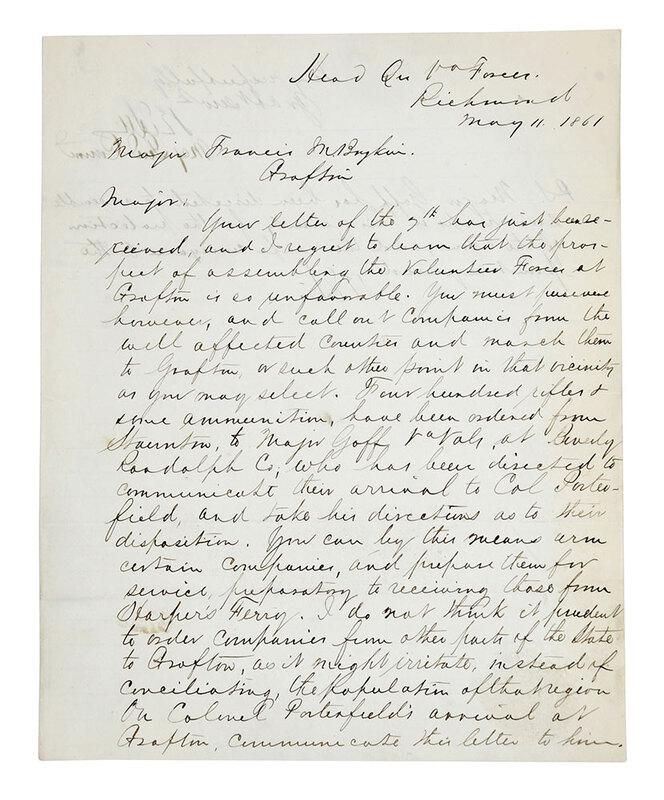 Head Qrs Va Forces.
Richmond
May 11. 1861
Major Francis M Boykin.
Grafton
Major:
Your letter of the 7th has just been re-
ceived, and I regret to learn that the pros-
pect of assembling the Volunteer Forces at
Grafton is so unfavorable. You must persevere
however, and call out Companies from the
well affected Counties and march them
to Grafton, or such other point in that vicinity
as you may select. Four hundred rifles &
some ammunition, have been ordered from
Staunton, to Major Goff Va Vols, at Beverly
Randolph Co; who has been directed to
communicate their arrival to Col Porter-
field, and take his directions as to their
disposition. You can by this means arm
certain Companies, and prepare them for
service, preparatory to receiving those from
Harper's Ferry. I do not think it prudent
to order Companies from other parts of the State
to Grafton, as it might irritate, instead of
conciliating, the Population of that region
On Colonel Porterfield's arrival at
Grafton, communicate this letter to him.